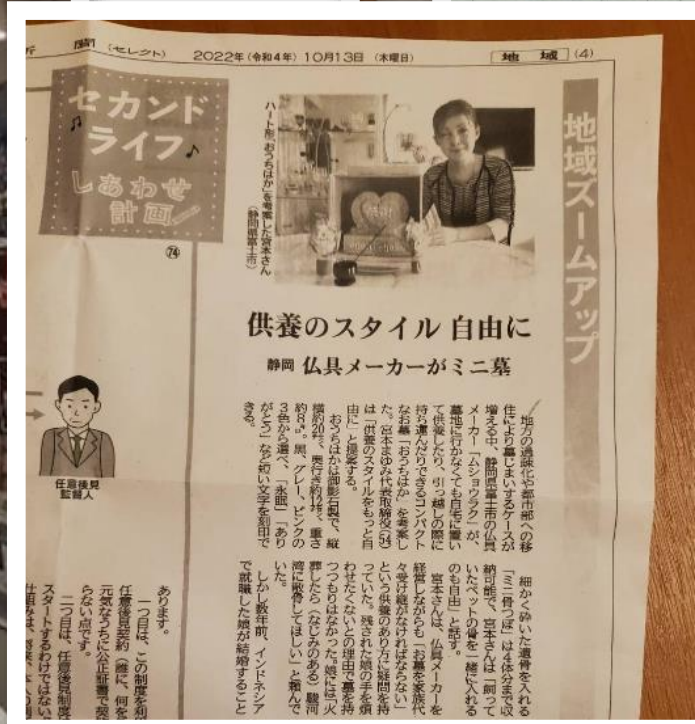 新聞 (セレクト)
2022年(令和4年) 10月13日 (木曜日)
地域 (4)
地域ズームアップ
ハート形「おうちはか」を考案した宮本さん
(静岡県富士市)
供養のスタイル 自由に
静岡 仏具メーカーがミニ墓
地方の過疎化や都市部への移
住により墓じまいするケースが
増える中、静岡県富士市の仏具
メーカー「ムショウラク」が、
墓地に行かなくても自宅に置い
て供養したり、引っ越しの際に
持ち運んだりできるコンパクト
なお墓「おうちはか」を考案し
た。宮本まゆみ代表取締役(54)
は「供養のスタイルをもっと自
由に」と提案する。
おうちはかは御影石製で、縦
横約20㌢、奥行き約12㌢、重さ
約8㌔。黒、グレー、ピンクの
3色から選べ、「永眠」「あり
がとう」など短い文字を刻印で
きる。
細かく砕いた遺骨を入れる
「ミニ骨つぼ」は4体分まで収
納可能で、宮本さんは「飼って
いたペットの骨を一緒に入れる
のも自由」と話す。
宮本さんは、仏具メーカーを
経営しながらも「お墓を家族代
々受け継がなければならない」
という供養のあり方に疑問を持
っていた。残された娘の手を煩
わせたくないとの理由で墓を持
つつもりはなかった。娘には「火
葬したら(なじみのある)駿河
湾に散骨してほしい」と頼んで
いた。
しかし数年前、インドネシア
で就職した娘が結婚すること
セカンド
ライフ
しあわせ
計画
㉔
任意後見
監督人
あります。
一つ目は、この制度を利
任意後見契約(誰に、何を
元気なうちに公正証書で契
らない点です。
二つ目は、任意後見制度
スタートするわけではない